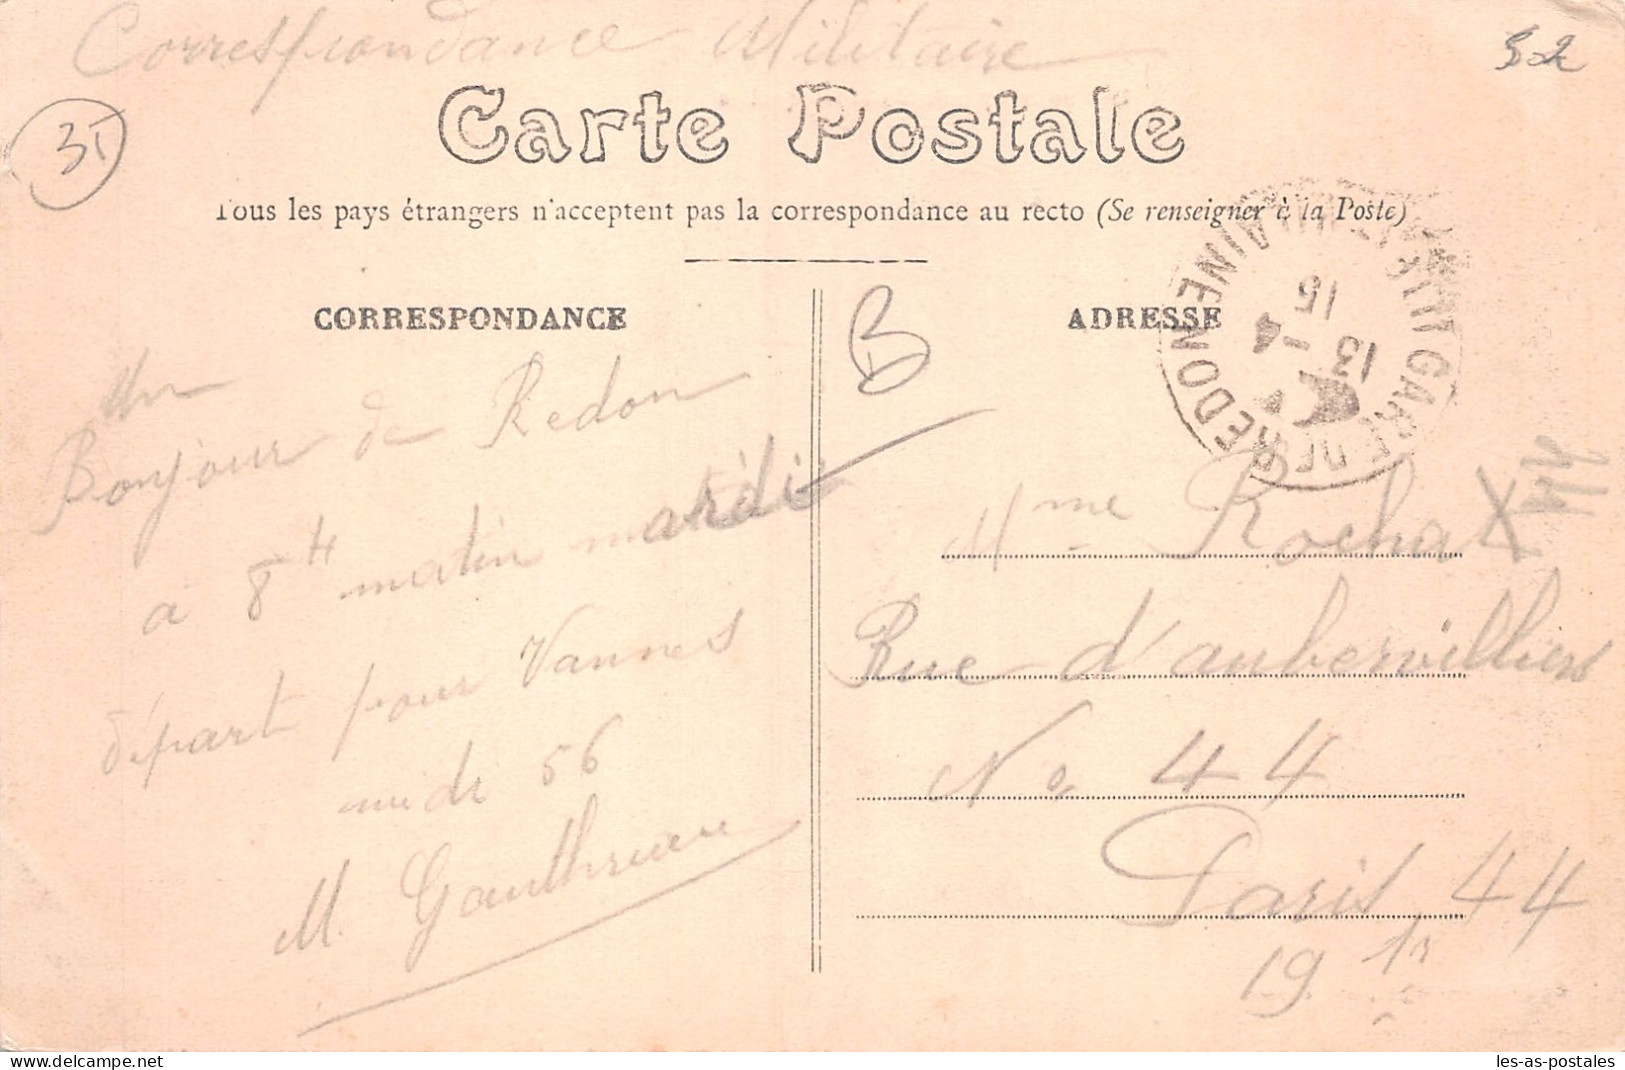 Correspondance Militaire
32
Carte Postale
35
Tous les pays étrangers n'acceptent pas la correspondance au recto (Se renseigner à la Poste)
CORRESPONDANCE
Un
Bonjour de Redon
a 8 H matin mardi
départ pour Vannes
midi 56
M.
B
ADRESSE
REDON
GARE DE
13 -4
15
Mme Rochat
Rue d'aubervilliers
No 44
Paris 44
19
les-as-postales